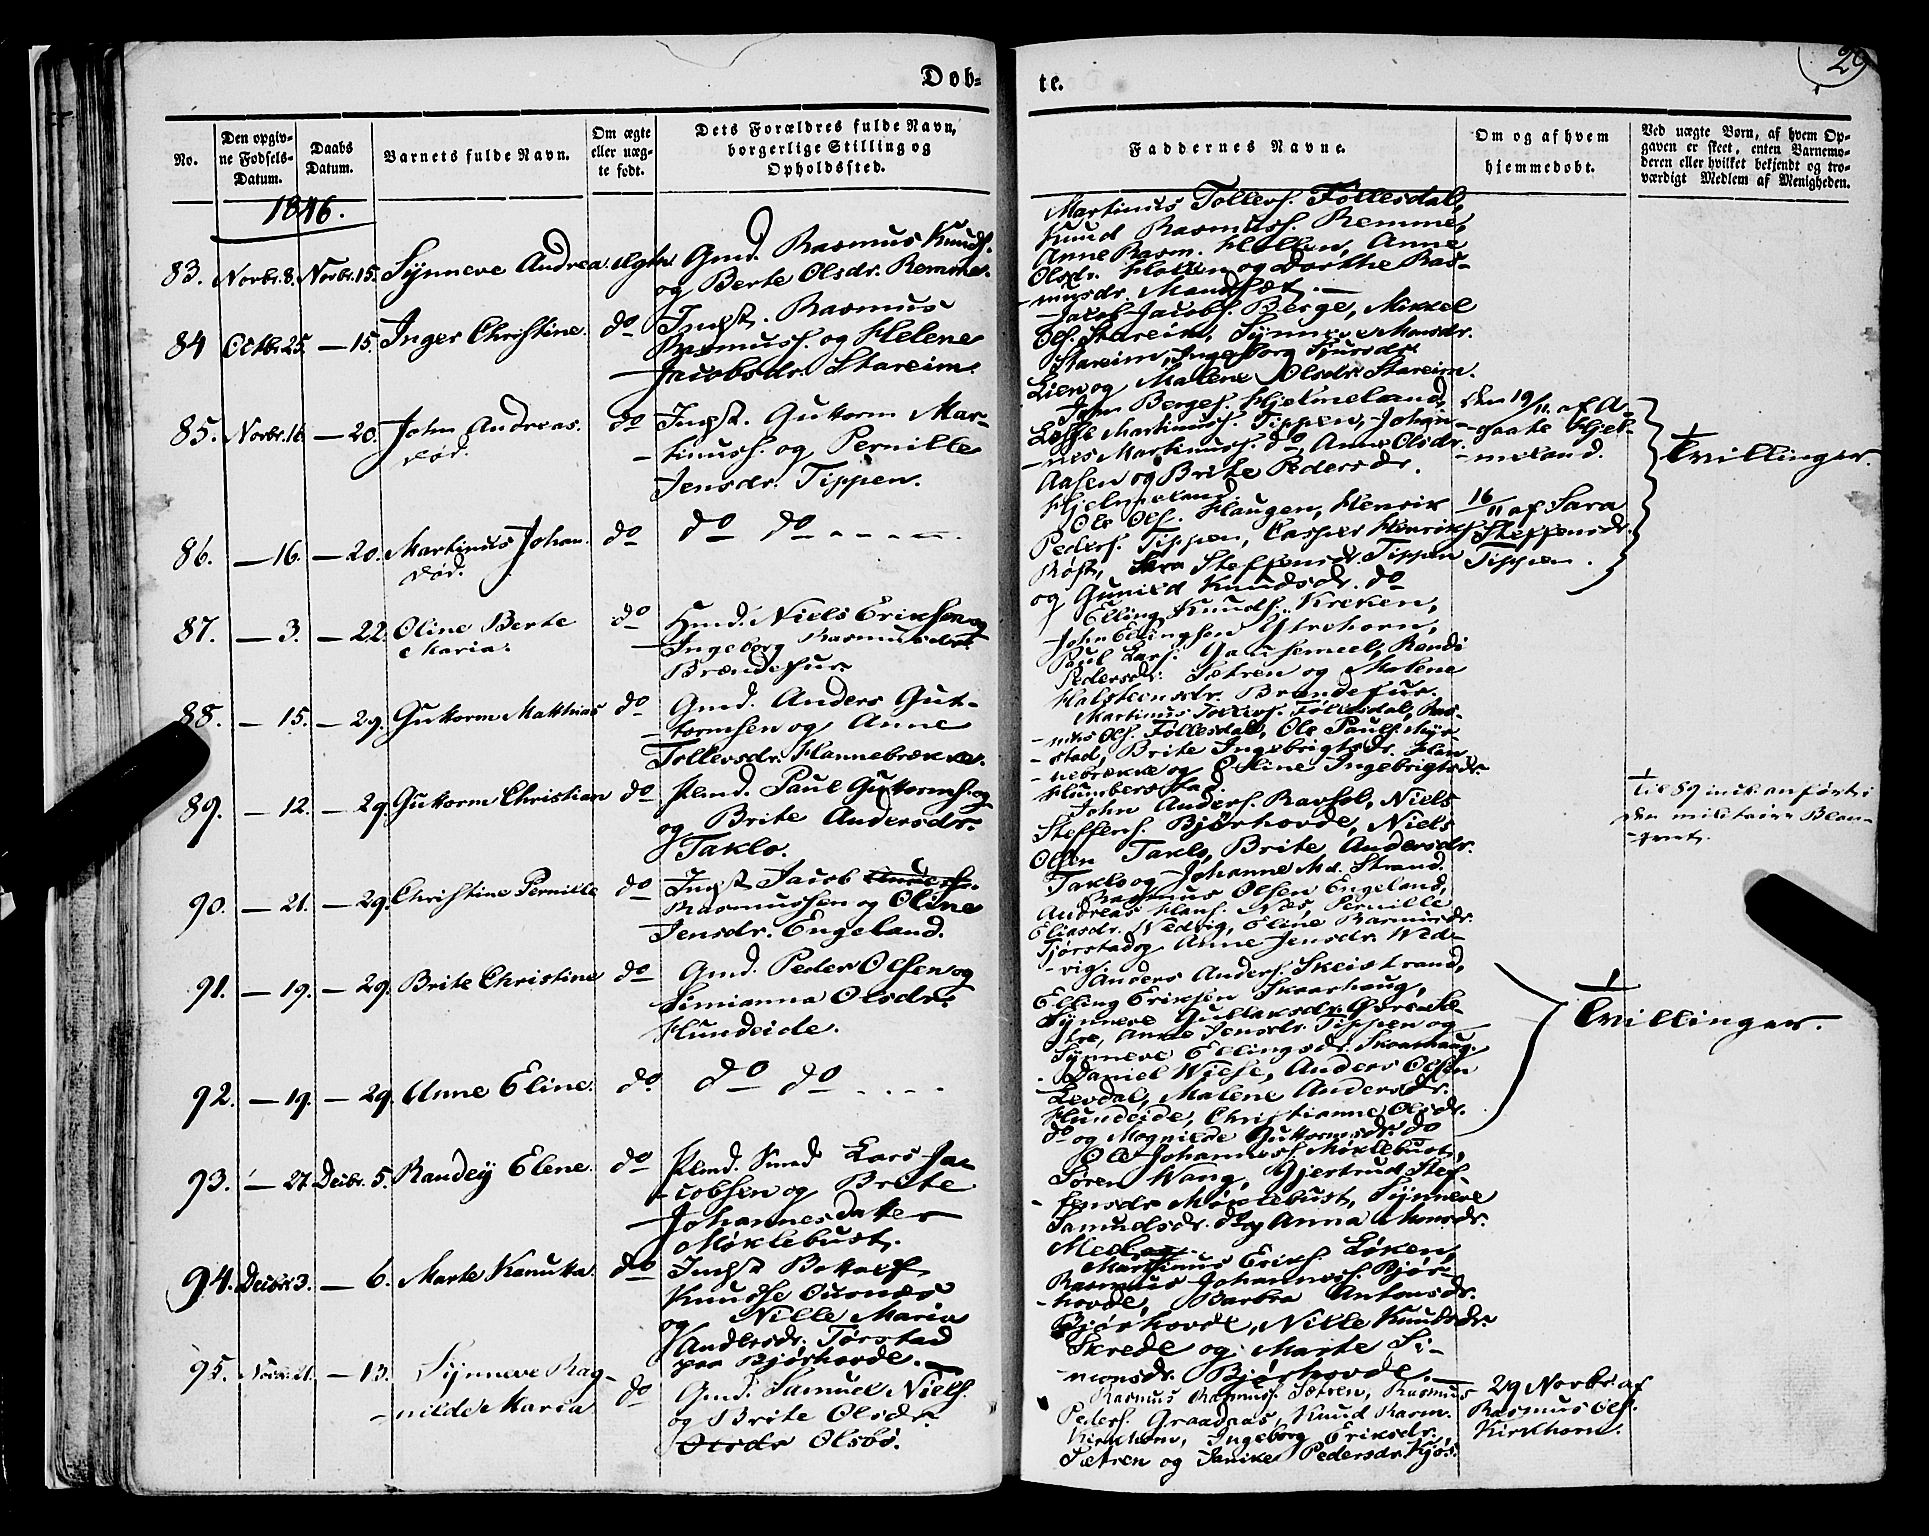 Dob-
te.
29
No.
Den opgiv-
ne Fødsels-
Datum.
Daabs
Datum.
Barnets fulde Navn.
Om ægte
eller uæg-
te født.
Dets Forældres fulde Navn,
borgerlige Stilling og
Opholdssted.
Faddernes Navne.
Om og af hvem
hjemmedøbt.
Ved uægte Børn, af hvem Op-
gaven er skeet, enten Barnemo-
deren eller hvilket bekjendt og tro-
værdigt Medlem af Menigheden.
1846.
83. Novbr. 8. Novbr. 15. Synneve Andrea ægte Gmd. Rasmus Knuds.
og Berte Olsdr. Remme.
Martinus Tollers. Follesdal,
Knud Rasmuss. Remme,
Anne Rasm. Hollen, Anne
Olsdr. Hollen og Dorthe Ras-
musdr. Mandsæt.
84 Octbr. 25. — 15. Inger Christine. do Indst. Rasmus
Rasmuss. og Helene
Jacobsdr. Stareim.
Jacob Jacobs. Berge, Mikkel
Ols. Stareim, Synneve Monsdr.
Stareim, Ingeborg Sjursdr.
Lien og Malene Olsdr. Stareim.
85. Novbr. 16 — 20. John Andreas. do Indst. Guttorm Mar-
død.
tinuss. og Pernille
Jensdr. Tippen.
John Berges. Hjelmeland,
Lasse Martinuss. Tippen, Johan-
nes Martinuss. do, Anne Olsdr.
Aasen og Brite Pedersdr.
Hjelmeland.
Den 19/11 af A-
gaate Hjel-
meland.
† Tvillinger.
86. — 16. — 20. Martinus Johan. do do do
død.
Ole Ols. Haugen, Henrik
Peders. Tippen, Casper Henriks.
Røst, Sara Steffensdr. Tippen
og Gunild Knudsdr. do
16/11 af Sara
Steffensdr.
Tippen.
87. — 3. — 22. Oline Berte do Hmd. Niels Eriksen og
Maria.
Ingeborg Rasmusdr.
Brændefur.
Elling Knuds. Kreken,
John Ellingsen Ytrehorn,
Paul Lars. Gausemeel, Randi
Pedersdr. Sætren og Malene
Halsteensdr. Brændefur.
88. — 15. — 29. Guttorm Matthias do Gmd. Anders Gut-
tormsen og Anne
Tollersdr. Hannebrække.
Martinus Tollers. Follesdal, Ras-
mus Ols. Follesdal, Ole Pauls. Myr-
stad, Brite Ingebrigtsdr. Han-
nebrække og Eline Ingebrigtsdr.
Humberstad.
89. — 12. — 29. Guttorm Christian do Plmd. Paul Guttorms. og
og Brite Andersdr.
Taklo.
John Anders. Navsol, Niels
Steffens. Bjørhovde, Niels
Olsen Taklo, Brite Andersdr.
Taklo og Johanne Md. Strand.
† Til 89 intet anført i
den militaire Blan-
qvet.
90. — 21. — 29. Christine Pernille do Indst Jacob Anders.
Rasmussen og Oline
Jensdr. Engeland.
Rasmus Olsen Engeland,
Andreas Hans. Næs, Pernille
Eliasdr. Nedvig, Eline Rasmusdr.
Tjørstad og Anne Jensdr. Wed-
vig.
91. — 19. — 29. Brite Christine do Gmd. Peder Olsen og
Simianna Olsdr.
Hundeide.
Anders Anders. Skeistrand,
Elling Eriksen Skaarhaug,
Synneve Gullaksdr. Øvrese-
tre, Anne Jensdr. Tippen og
Synneve Ellingsdr. Skaarhaug.
† Tvillinger.
92. — 19. — 29. Anne Eline. do do do
Daniel Wiese, Anders Olsen
Levdal, Malene Andersdr.
Hundeide, Christianne Olsdr.
do og Magnilde Guttormsdr. do
93. — 27. Decbr. 5. Randey Elene. do Plmd. Smed Lars Ja-
cobsen og Brite
Johannesdatter
Møklebust.
Ole Johanness. Møklebust,
Søren Wang, Gjertrud Stef-
fensdr. Møklebust, Synneve
Samuelsdr. do og Anna Monsdr.
94. Decbr. 3. — 6. Marte Kanutta. do Indst Bottolf
Knudse Ousnæs
og Nille Maria
Andersdr. Tørstad
paa Bjørhovde.
Martinus Eriks. Løken,
Rasmus Johanness. Bjør-
hovde, Barbra Antonsdr.
Bjørhovde, Nille Knudsdr.
Skrede og Marte Si-
monsdr. Bjørhovde.
95. Novbr. 21. — 13. Synneve Rag-
nilde Maria. do Gmd. Samuel Niels.
og Brite Olsdr.
Olsdr Olsbø.
Rasmus Rasmuss. Sætren, Rasmus
Peders. Graadnæs, Knud Rasm.
Kirkhorn, Ingeborg Eriksdr.
Sætren og Janike Pedersdr. Kjøs.
29 Novbr. af
Rasmus Ols.
Kirkhorn.